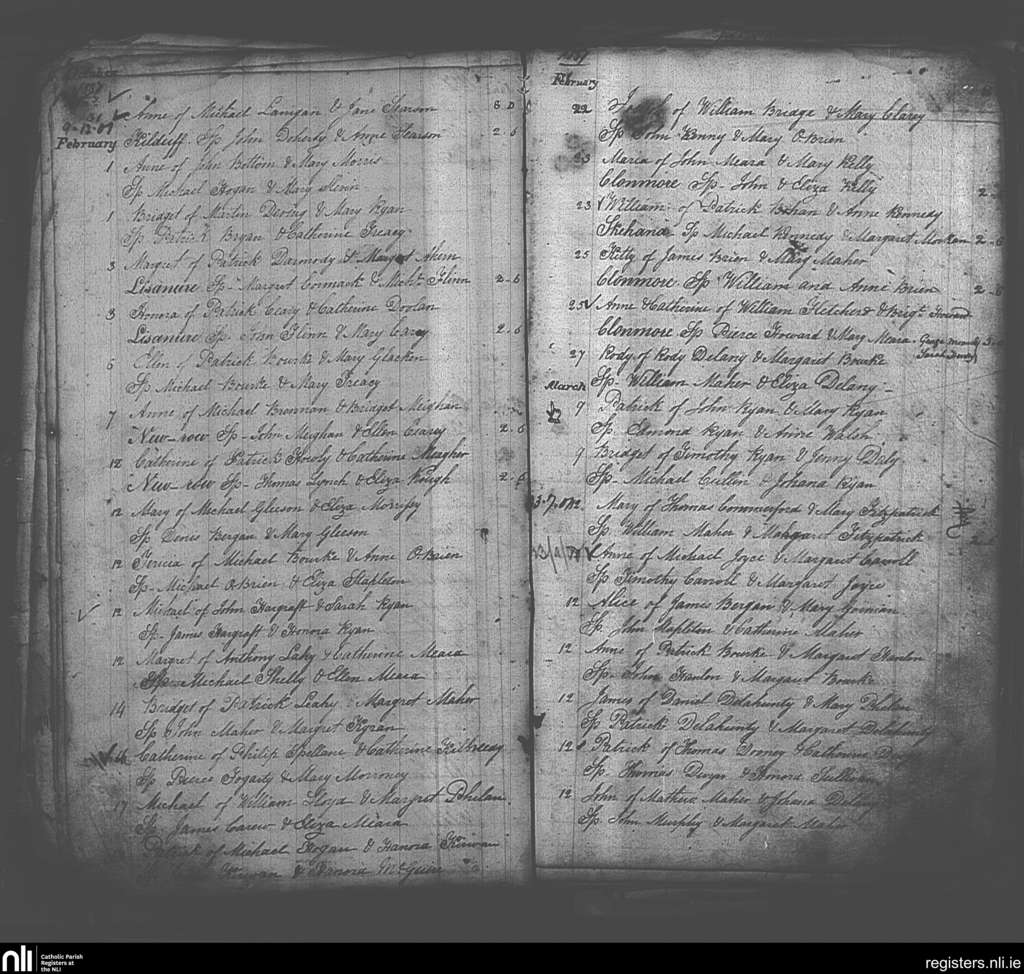 1837
9-12-07
February
Anne of Michael Lanigan & Jane Searson
S D
Kilduff Sp John Doherty & Anne Searson 2-6
1 Anne of John Bottom & Mary Morris
Sp Michael Hogan & Mary
1 Bridget of Martin & Mary Ryan
Sp Patrick Bryan & Catherine Treacy
3 Margret of Patrick Darmody & Margret Ahern
Lisanure Sp- Margret Cormack & Michl. Flinn 2-6
3 Honora of Patrick Ceary & Catherine Doolan
Lisanure Sp John Flinn & Mary Carey 2-6
6 Ellen of Patrick Rourke & Mary Glacken
Sp Michael Bourke & Mary Treacy
7 Anne of Michael Brennan & Bridget Meighan
New-row Sp- John Meighan & Ellen Cearey 2-6
12 Catherine of Patrick & Catherine Meagher
New-row Sp- Thomas Lynch & Eliza Keough 2-6
12 Mary of Michael Gleeson & Eliza Morrissy
Sp Denis Bergan & Mary Gleeson
12 Teresia of Michael Bourke & Anne OBrien
Sp- Michael OBrien & Eliza Stapleton
12 Michael of John Hargraft & Sarah Ryan
Sp- James Hargraft & Honora Ryan
12 Margret of Anthony Lahy & Catherine Meara
Sp- Michael Shelly & Ellen Meara
14 Bridget of Patrick Leahy & Margret Maher
Sp John Maher & Margret
Catherine of Philip Spellane & Catherine
Sp Pierce Fogarty & Mary Morroney
17 Michael of William Floyd & Margret Phelan
Sp James Carew & Eliza Meara
Patrick of Michael Hogan & Hanora Kirwan
Kirwan & Hanora McGuire
1837
February
22 of William Bridge & Mary Clary
Sp John Kenny & Mary O.Brien
23 Maria of John Meara & Mary Kelly
Clonmore Sp- John & Eliza Kelly 2-
23 William of Patrick Bohan & Anne Kennedy
Skehana Sp Michael Kennedy & Margaret 2-6
25 Kitty of James Brien & Mary Maher
Clonmore Sp William and Anne Brien 2-6
25 Anne & Catherine of William Fletcher & Brigt. Howard
Clonmore Sp Pierce Howard & Mary Meara
27 Rody of Rody Delany & Margaret Bourke
Sp- William Maher & Eliza Delany-
March
7 Patrick of John Ryan & Mary Ryan
Sp Edmond Ryan & Anne Walsh
9 Bridget of Timothy Ryan & Jenny Daly
Sp- Michael Cullen & Johana Ryan
Mary of Thomas Commerford & Mary Fitzpatrick
Sp William Maher & Margaret Fitzpatrick
Anne of Michael Joyce & Margaret Carroll
Sp Timothy Carroll & Margaret Joyce
12 Alice of James Bergan & Mary
Sp. John Stapleton & Catherine Maher
12 Anne of Patrick Bourke & Margaret Hanlon
Sp- John Hanlon & Margaret Bourke
12 James of Daniel Delahunty & Mary Phelan
Sp Patrick Delahunty & Margaret Delahunty
12 Patrick of Thomas & Catherine
Sp. Thomas Dwyer & Honora Sullivan
12 John of Mathew Maher & Johana Delany
Sp John Murphy & Margaret Maher
nli
Catholic Parish
Registers at
the NLI
registers.nli.ie